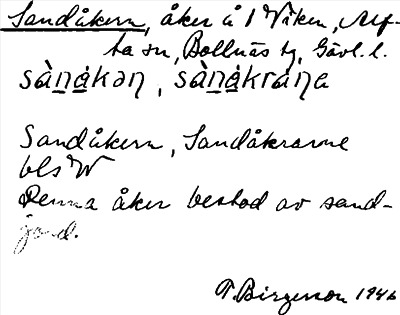 Sandåkern, åker å 1 Viken, Alf-
ta sn, Bollnäs tg, Gävl. l.
sànǡkən, sànǡkrána
Sandåkern, Sandåkrarne
bls W
Denna åker bestod av sand-
jord.
T. Birgerson 1946